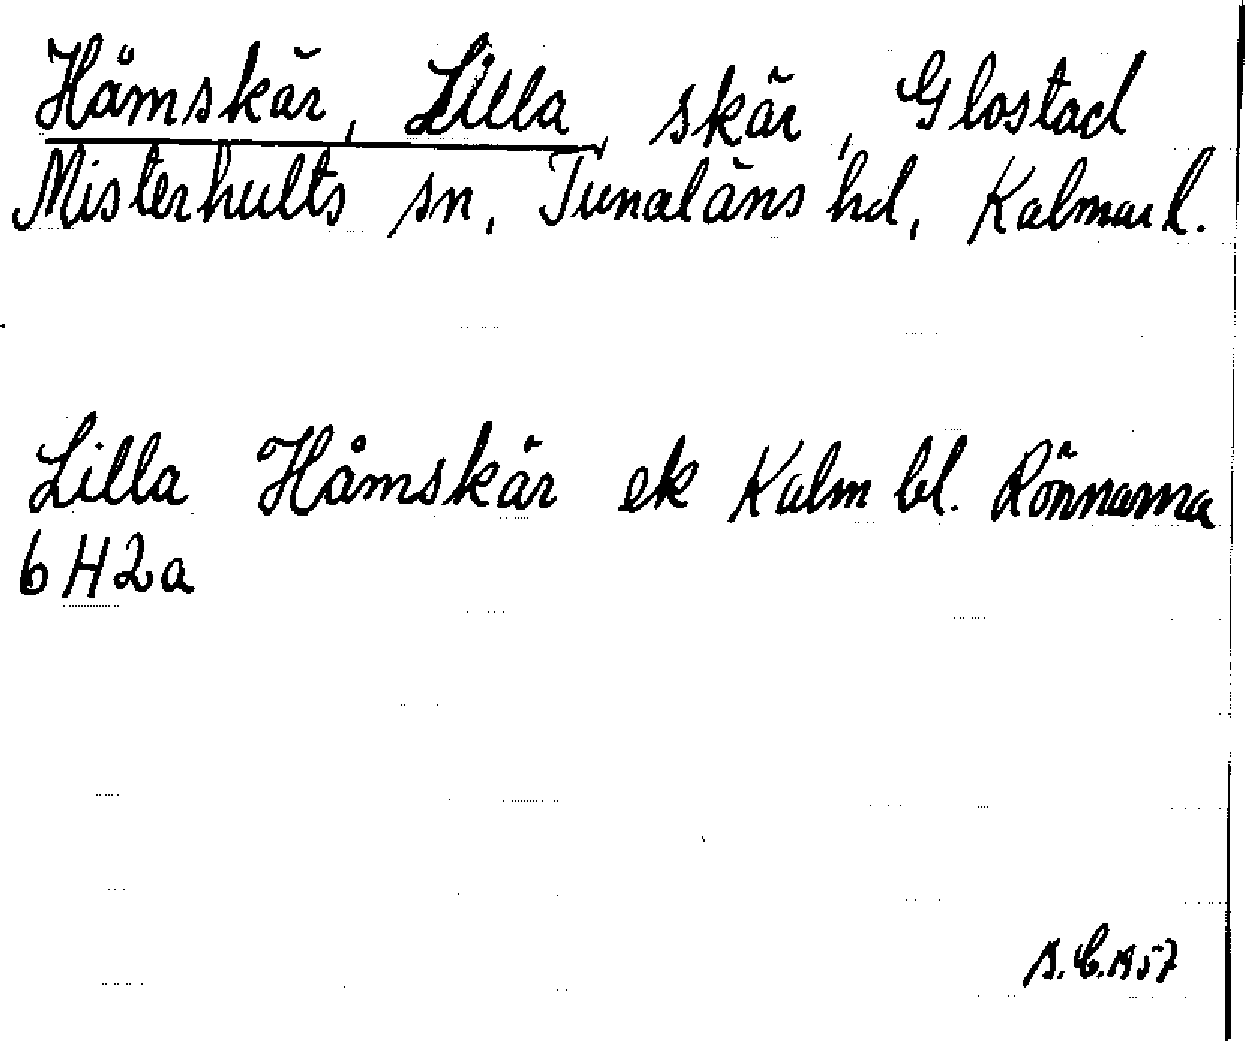 Håmskär, Lilla, skär, Glostad
Misterhults sn, Tunaläns hd, Kalmar l.
Lilla Håmskär ek Kalm bl. Rönnarna
6 H2a
S.C.1957